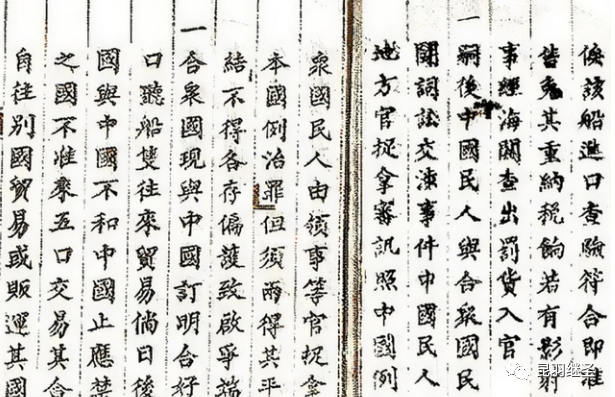 候該船進口查驗符合即准
皆免其重納稅餉若有影射
事經海關查出罰貨入官
一嗣後中國民人與合衆國民
鬭詞訟交涉事件中國民人
地方官捉拿審訊照中國例
衆國民人由領事等官捉拿
本國例治罪但須兩得其平
結不得各存偏護致啟爭端
一合衆國現與中國訂明合好
口聽船隻往來貿易倘日後
國與中國不和中國止應禁
之國不准來五口交易其合
自往別國貿易或販運其國
昆羽继圣